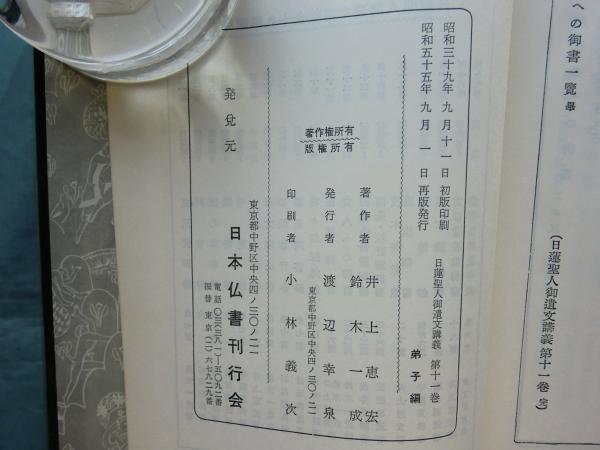 への御書一覧 畢
(日蓮聖人御遺文講義第十一巻 完)
昭和三十九年 九月 十一日 初版印刷
昭和五十五年 九月 一日 再版発行
日蓮聖人御遺文講義 第十一巻
弟子編
著作権所有
版権所有
著作者 井上恵宏
鈴木一成
発行者 渡辺幸泉
東京都中野区中央四ノ三〇ノ二一
印刷者 小林義次
発兌元
東京都中野区中央四ノ三〇ノ二一
日本仏書刊行会
電話〇三(三八一)一五〇九二番
振替 東京(二)六七九二九番